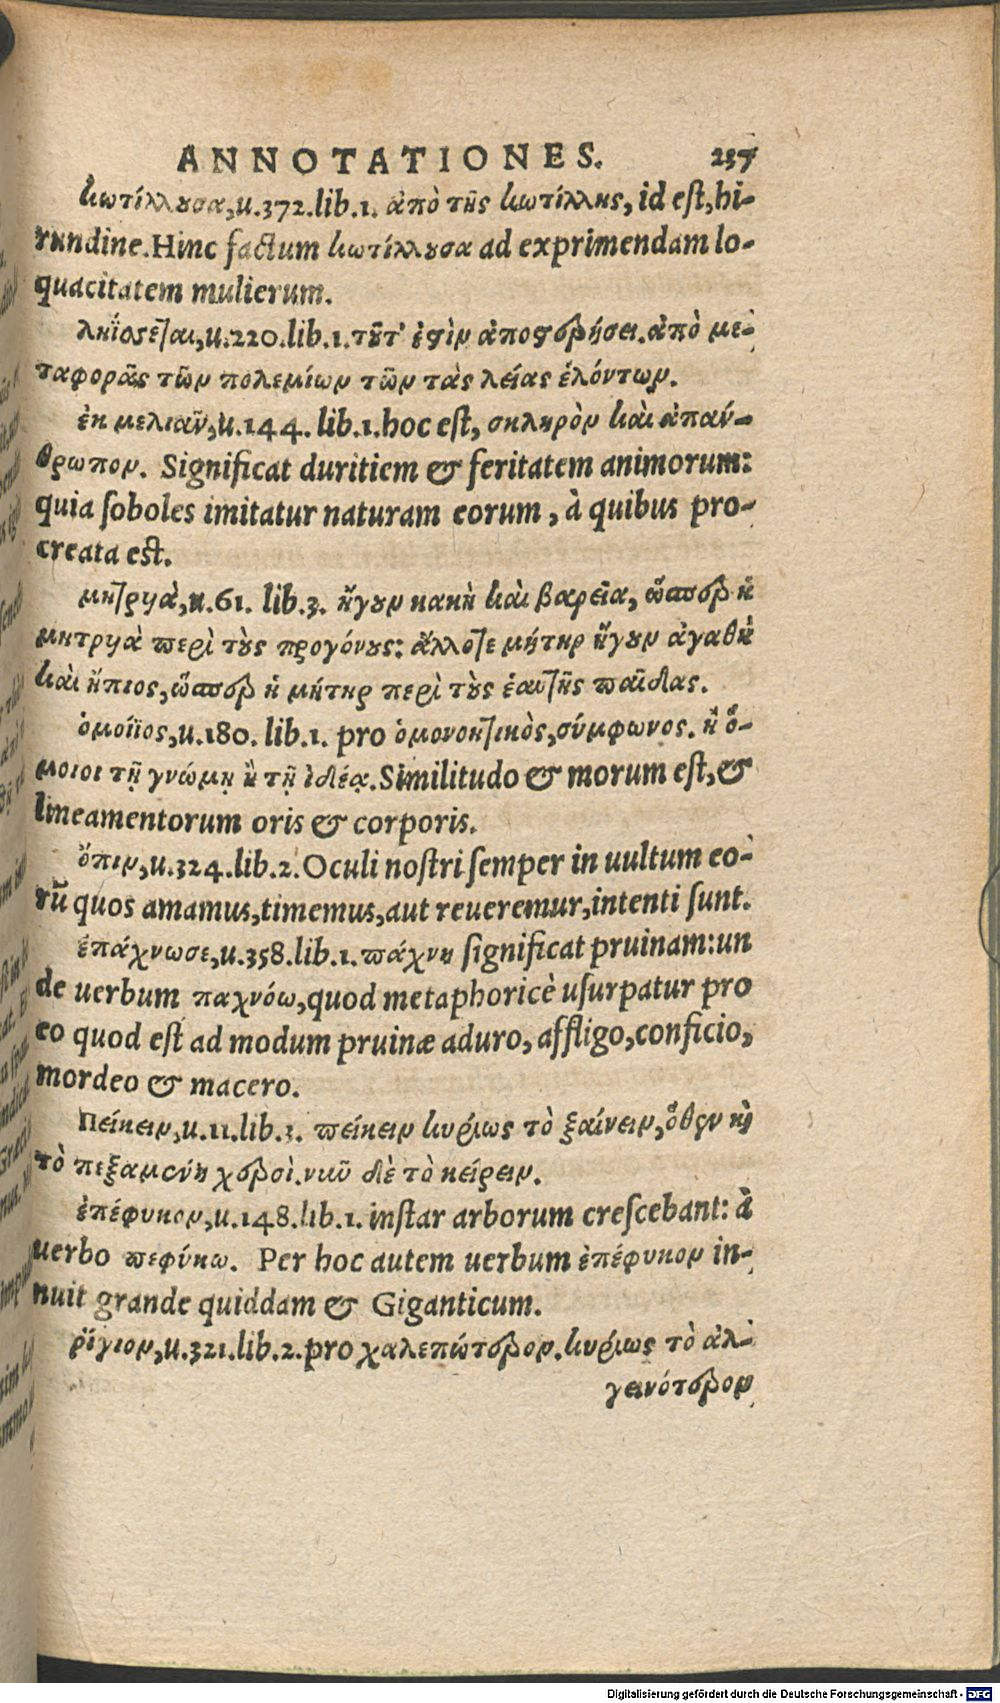 ANNOTATIONES. 257
κωτίλλουσα, u.372.lib.1. ἀπὸ τῆς κωτίλλης, id est, hi-
rundine. Hinc factum κωτίλλουσα ad exprimendam lo-
quacitatem mulierum.
ληΐσσεται, u.220.lib.1. τοῦτ' ἐστὶν ἀποστερήσει. ἀπὸ με-
ταφορᾶς τῶν πολεμίων τῶν τὰς λείας ἑλόντων.
ἐκ μελιᾶν, u.144. lib.1. hoc est, σκληρὸν καὶ ἀπάν-
θρωπον. Significat duritiem & feritatem animorum:
quia soboles imitatur naturam eorum, à quibus pro-
creata est.
μητρυὰ, u.61. lib.3. ἤγουν κακὴ καὶ βαρεῖα, ὥσπερ ἡ
μητρυὰ περὶ τοὺς προγόνους: ἄλλοτε μήτηρ ἤγουν ἀγαθὴ
καὶ ἤπιος, ὥσπερ ἡ μήτηρ περὶ τοὺς ἑαυτῆς παῖδας.
ὁμοίϊος, u.180. lib.1. pro ὁμονοητικὸς, σύμφωνος. ἢ ὅ-
μοιοι τῇ γνώμῃ ἢ τῇ ἰδέᾳ. Similitudo & morum est, &
lineamentorum oris & corporis.
ὄπιν, u.324.lib.2. Oculi nostri semper in uultum eo-
rũ quos amamus, timemus, aut reueremur, intenti sunt.
ἐπάχνωσε, u.358.lib.1. πάχνη significat pruinam: un
de uerbum παχνόω, quod metaphoricè usurpatur pro
eo quod est ad modum pruinæ aduro, affligo, conficio,
mordeo & macero.
Πείκειν, u.11.lib.3. πείκειν κυρίως τὸ ξαίνειν, ὅθεν καὶ
τὸ πεξαμένη χερσὶ. νῦν δὲ τὸ κείρειν.
ἐπέφυκον, u.148.lib.1. instar arborum crescebant: à
uerbo πεφύκω. Per hoc autem uerbum ἐπέφυκον in-
nuit grande quiddam & Giganticum.
ῥίγιον, u.321.lib.2. pro χαλεπώτερον. κυρίως τὸ ἀλ-
γεινότερον
Digitalisierung gefördert durch die Deutsche Forschungsgemeinschaft - DFG